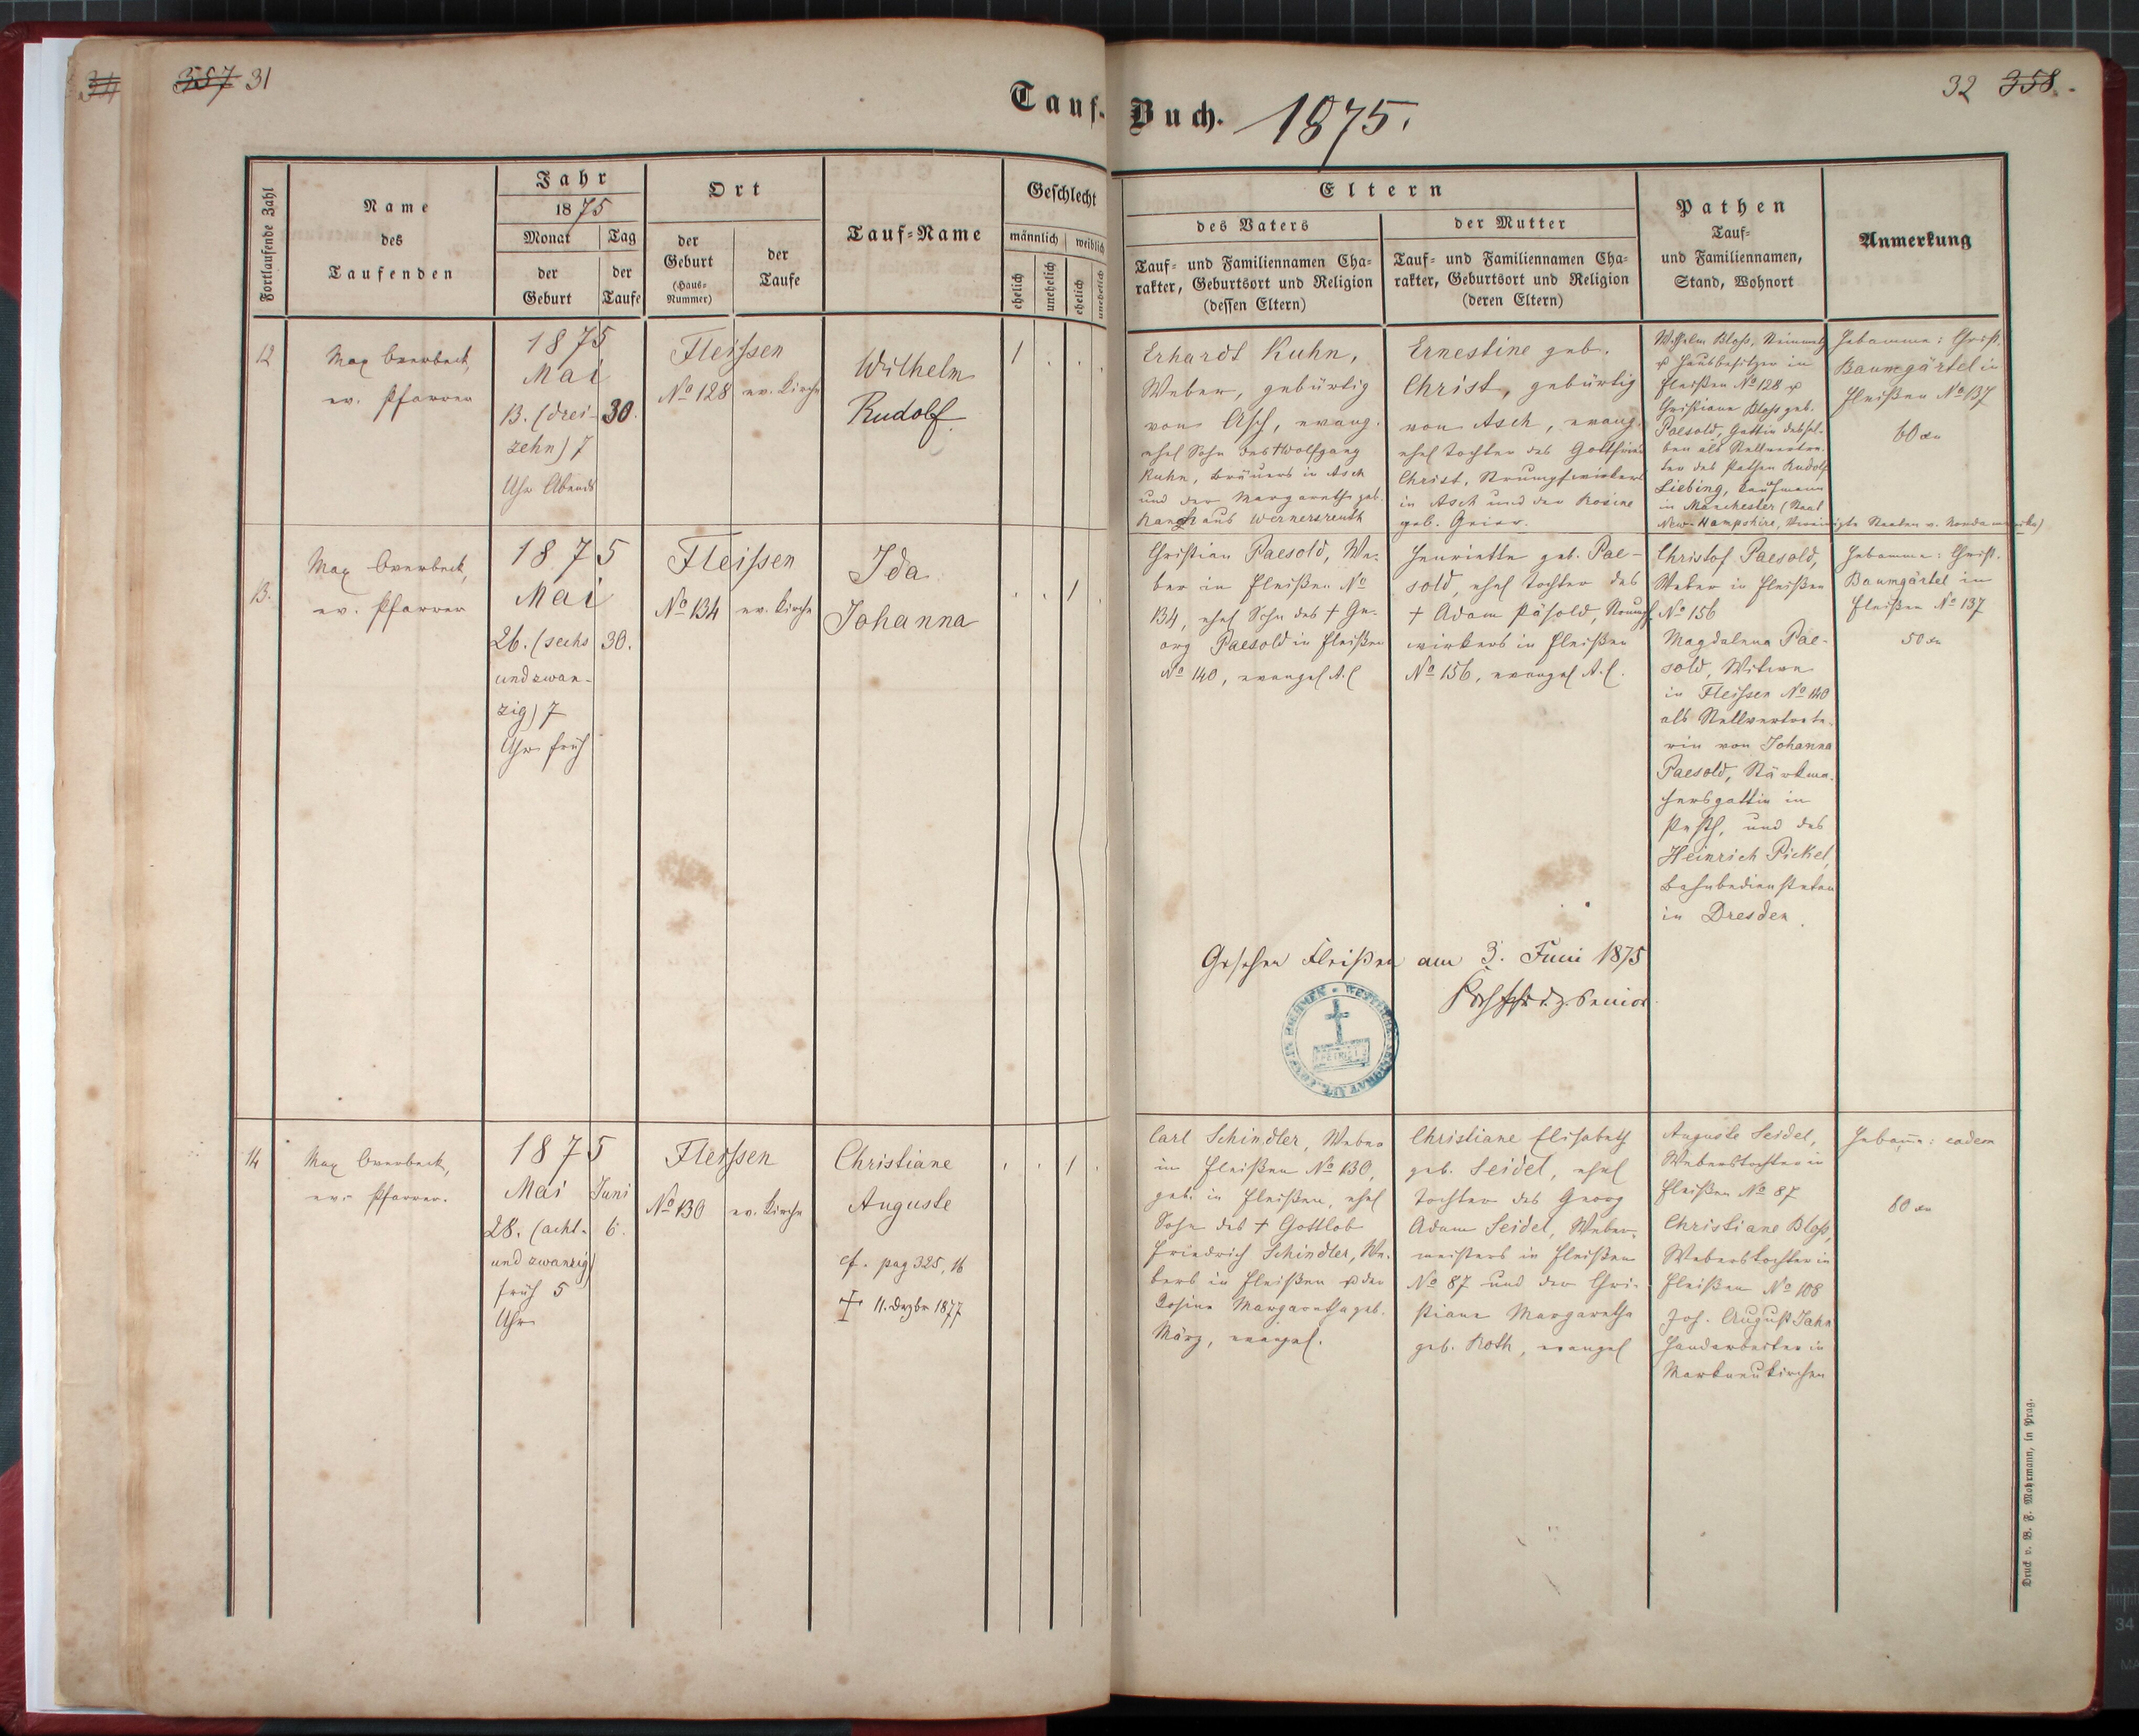 357 31
32 358.
Tauf-Buch. 1875.
Fortlaufende Zahl
Name
des
Taufenden
Jahr
1875
Monat
der
Geburt
Tag
der
Taufe
Ort
der
Geburt
(Haus-
Nummer)
der
Taufe
Tauf-Name
Geschlecht
männlich
weiblich
ehelich
unehelich
ehelich
unehelich
Eltern
des Vaters
Tauf- und Familiennamen Cha-
rakter, Geburtsort und Religion
(dessen Eltern)
der Mutter
Tauf- und Familiennamen Cha-
rakter, Geburtsort und Religion
(deren Eltern)
Pathen
Tauf-
und Familiennamen,
Stand, Wohnort
Anmerkung
12
Max Overbeck,
ev. Pfarrer
1875
Mai
13. (drei-
zehn) 7
Uhr Abends
30.
Fleissen
No 128
ev. Kirche
Wilhelm
Rudolf
1
Erhardt Kuhn,
Weber, gebürtig
von Asch, evang.
ehel Sohn des + Wolfgang
Kuhn, Bräuers in Asch
und der Margaretha geb.
aus Wernersreuth
Ernestine geb.
Christ, gebürtig
von Asch, evang.
ehel Tochter des Gottfried
Christ, Strumpfwirkers
in Asch und der Rosine
geb. Geier.
Wilhelm Bloss, Steinmetz
u Hausbesitzer in
Fleißen No 128 u
Christiane Bloss geb.
Paesold, Gattin dessel-
ben als Stellvertre-
ter des Pathen Rudolf
Liebing, Kaufmann
in Manchester (Staat
New-Hampshire, Vereinigte Staaten v. Nordamerika)
Hebamme: Christ.
Baumgärtel in
Fleißen No 137
60 xr
13.
Max Overbeck,
ev. Pfarrer
1875
Mai
26. (sechs
und zwan-
zig) 7
Uhr früh
30.
Fleissen
No 134
ev. Kirche
Ida
Johanna
1
Christian Paesold, We-
ber in Fleißen No
134, ehel Sohn des + Ge-
org Paesold in Fleißen
No 140, evangel A. C
Henriette geb. Pae-
sold, ehel Tochter des
+ Adam Päsold, Strumpf
wirkers in Fleißen
No 156, evangel A. C.
Christof Paesold,
Weber in Fleißen
No 156
Magdalena Pae-
sold, Witwe
in Fleissen No 140
als Stellvertrete-
rin von Johanna
Paesold, Stärkma-
chersgattin in
Pesth, und des
Heinrich Pickel,
Bahnbediensteten
in Dresden.
Hebamme: Christ.
Baumgärtel in
Fleißen No 137
50 xr
Gesehen Fleißen am 3. Juni 1875
Senior
14
Max Overbeck,
ev. Pfarrer.
1875
Mai
28. (acht-
und zwanzig)
früh 5
Uhr
Juni
6.
Fleissen
No 130
ev. Kirche
Christiane
Auguste
cf. pag 325, 16
+ 11. Dezbr 1877
1
Carl Schindler, Weber
in Fleißen No 130,
geb. in Fleißen, ehel
Sohn des + Gottlob
Friedrich Schindler, We-
bers in Fleißen u der
Rosine Margaretha geb.
März, evangel.
Christiane Elisabeth
geb. Seidel, ehel
Tochter des Georg
Adam Seidel, Weber-
meisters in Fleißen
No 87 und der Chri-
stiane Margaretha
geb. Roth, evangel
Auguste Seidel,
Weberstochter in
Fleißen No 87
Christiane Bloss,
Weberstochter in
Fleißen No 108
Joh. August Jahn
Handarbeiter in
Markneukirchen
Hebamme: eadem
60 xr
Druck v. B. F. Mohrmann, in Prag.
34